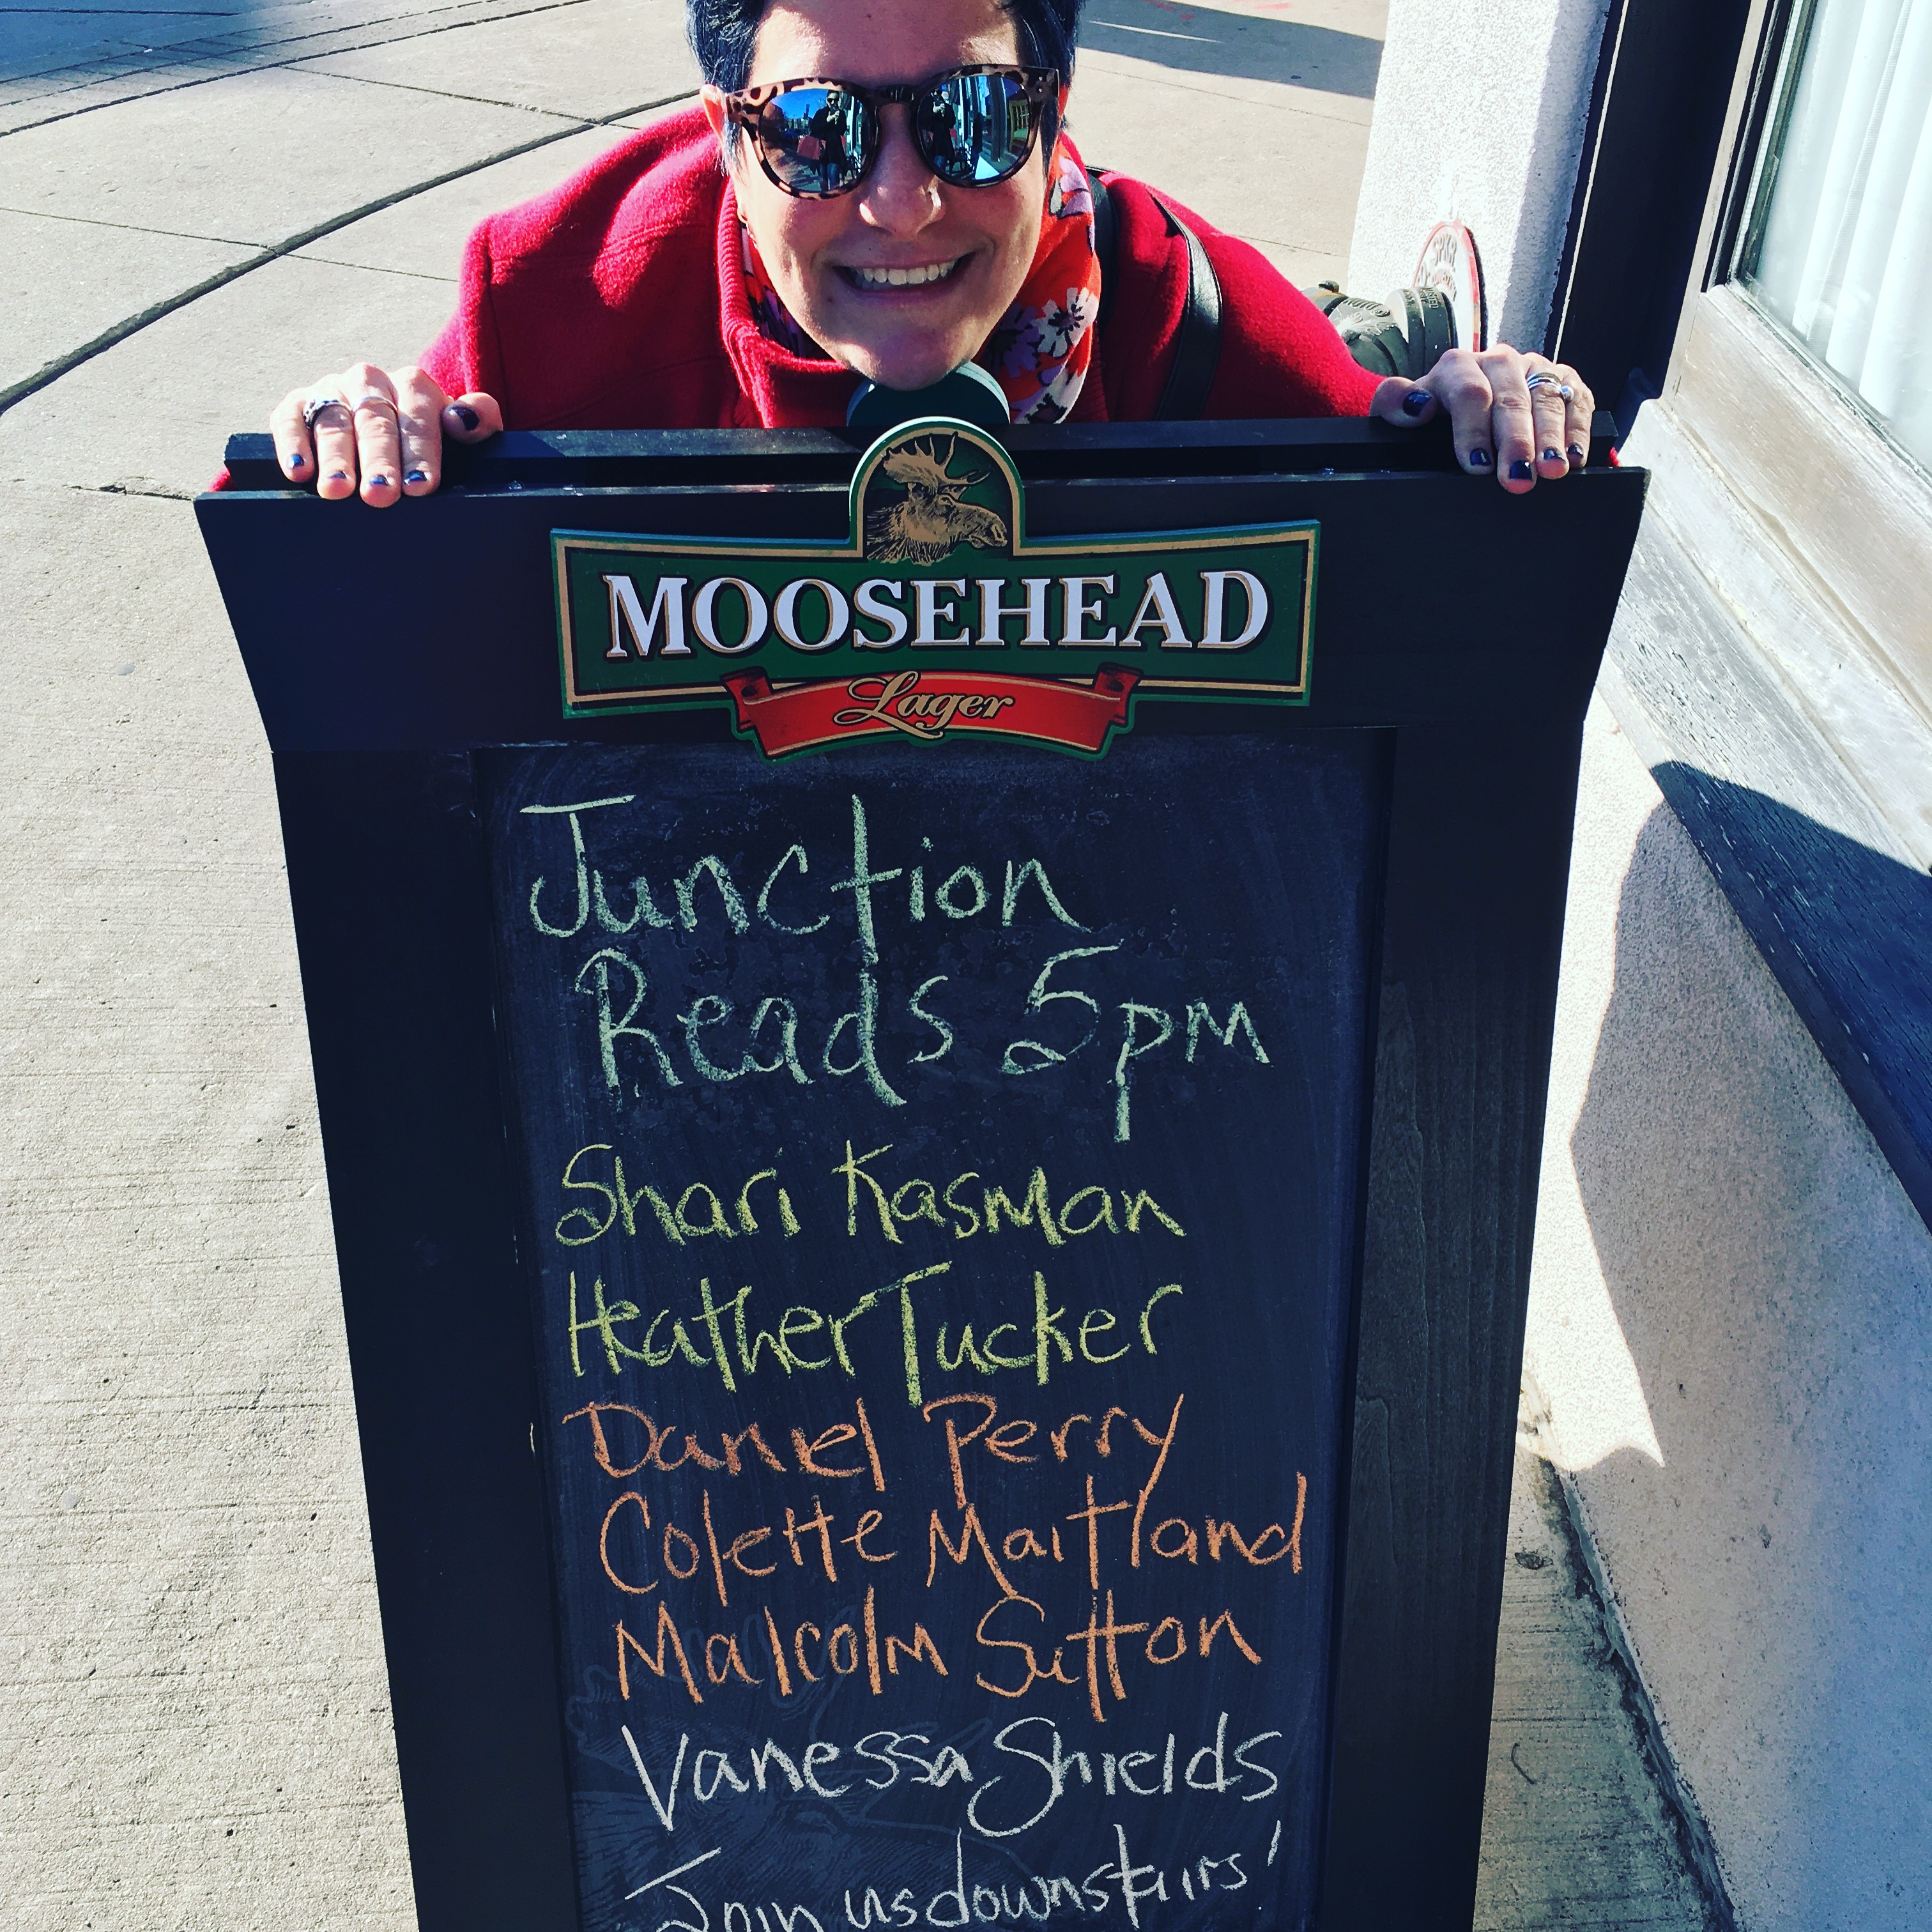 MOOSEHEAD
Lager
Junction
Reads 5pm
Shari Kasman
Heather Tucker
Daniel Perry
Colette Maitland
Malcolm Sutton
Vanessa Shields
Join us downstairs!